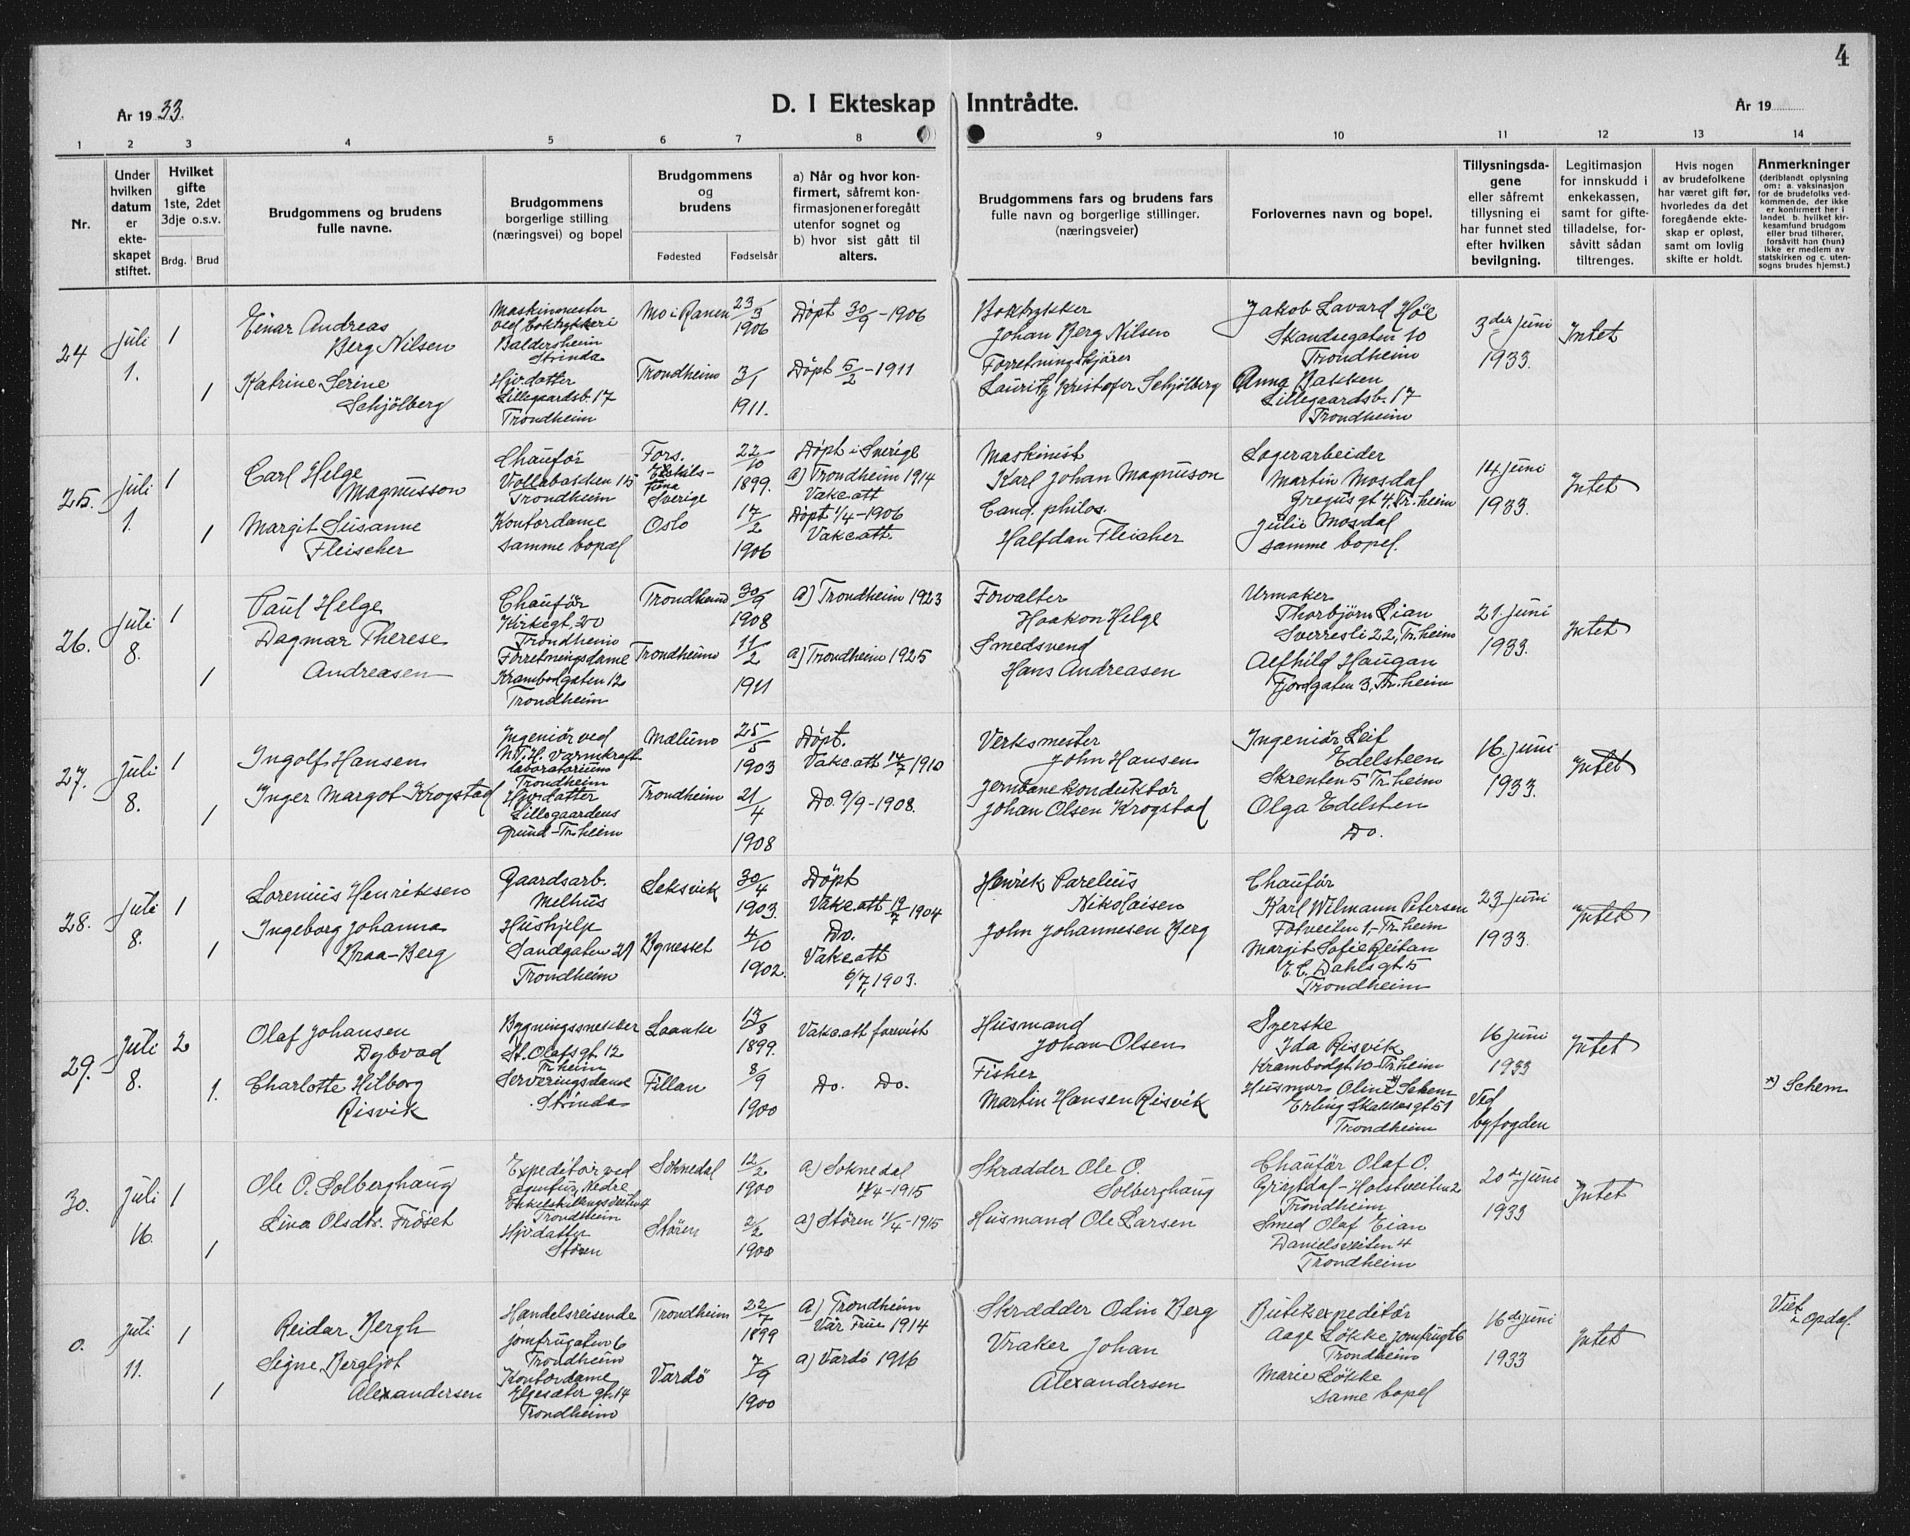 4
År 1933.
D. I Ekteskap Inntrådte.
År 19
1 2 3 4 5 6 7 8 9 10 11 12 13 14
Nr.
Under hvilken datum er ekteskapet stiftet.
Hvilket gifte 1ste, 2det 3dje o.s.v.
Brdg. Brud
Brudgommens og brudens fulle navne.
Brudgommens borgerlige stilling (næringsvei) og bopel
Brudgommens og brudens
Fødested Fødselsår
a) Når og hvor konfirmert, såfremt konfirmasjonen er foregått utenfor sognet og b) hvor sist gått til alters.
Brudgommens fars og brudens fars fulle navn og borgerlige stillinger. (næringsveier)
Forlovernes navn og bopel.
Tillysningsdagene eller såfremt tillysning ei har funnet sted efter hvilken bevilgning.
Legitimasjon for innskudd i enkekassen, samt for giftetilladelse, forsåvitt sådan tiltrenges.
Hvis nogen av brudefolkene har været gift før, hvorledes da det foregående ekteskap er opløst, samt om lovlig skifte er holdt.
Anmerkninger (deriblandt oplysning om: a. vaksinasjon for de brudefolks vedkommende, der ikke er konfirmert her i landet b. hvilket kirkesamfund brudgom eller brud tilhører, forsåvitt han (hun) ikke er medlem av statskirken og c. utensogns brudes hjemst.)
24
juli
1.
1
1
Einar Andreas
Berg Nilsen
Katrine Serine
Schjölberg
Maskinmester
ved boktykkeri
Baldersheim
Strinda
Hjv. datter
Lillegaardsb. 17
Trondheim
Mo i Ranen
Trondheim
23/3
1906
3/1
1911.
Døpt 30/9-1906
Døpt 5/2-1911
Boktykker
Johan Berg Nilsen
Forretningskjører
Lauritz Kristofer Schjölberg
Jakob Lavard Höe
Skandsegaten 10
Trondheim
Anna Bakken
Lillegaardsb. 17
Trondheim
3die juni
1933.
Intet
25.
juli
1.
1
1
Carl Helge
Magnusson
Margit Susanne
Fleischer
Chauför
Vollabakken 15
Trondheim
Kontordame
samme bopæl
Fors.
Eskils-
tuna
Sverige
Oslo
22/10
1899.
17/2
1906
Døpt i Sverige
a) Trondheim 1914
Vakc. att
Døpt 1/4-1906
Vakc. att.
Maskinist
Karl Johan Magnuson
Cand. philos.
Halfdan Fleicher
Lagerarbeider
Martin Mosdal
Gregus gt 4, Tr. heim
Julie Mosdal
samme bopel.
14 juni
1933.
Intet
26.
juli
8.
1
1
Paul Helge
Dagmar Therese
Andreasen
Chauför
Kirkegt. 20
Trondheim
Forretningsdame
Krambodgaten 12
Trondheim
Trondheim
Trondheim
30/9
1908
11/2
1911
a) Trondheim 1923
a) Trondheim 1925
Forvalter
Haakon Helge
Smedsvend
Hans Andreasen
Urmaker
Thorbjörn Lian
Sverresli 22, Tr. heim
Alfhild Haugan
Fjordgaten 3, Tr. heim
21 juni
1933.
Intet
27.
juli
8.
1
1
Ingolf Hansen
Inger Margot Krogstad
Ingeniör ved
N.T.H. Varmkraft
laboratorium
Trondheim
Hjv. datter
Lillegaardens
grund - Tr. heim
Mælum
Trondheim
25/5
1903
21/4
1908
Døpt.
Vakc. att 14/7 1910
Do. 9/9-1908.
Verksmester
John Hansen
Jernbanekonduktör
Johan Olsen Krogstad
Ingeniör Leif
Edelsteen
Skrenten 5 Tr. heim
Olga Edelsteen
Do.
16. juni
1933.
Intet
28.
juli
8.
1
1
Lorenius Henriksen
Ingeborg Johanna
Braa-Berg
Gaardsarb.
Melhus
Hushjelp
Sandgaten 29
Trondheim
Leksvik
Bynesset
30/4
1903.
4/10
1902.
Døpt
Vakc. att 19/7 1904
Do.
Vakc. att
6/7, 1903.
Henrik Parelius
Nikolaisen
John Johannesen Berg
Chauför
Karl Wilmann Petersen
Fotveiten 1 - Tr. heim
Margit Sofie Reitan
E. C. Dahls gt. 5
Trondheim
23 juni
1933.
Intet
29.
juli
8.
2
1.
Olaf Johansen
Dybvad
Charlotte Hilborg
Risvik
Bygningssnekker
St. Olafs gt. 12
Tr. heim
Serveringsdame
Strinda
Laanke
Fillan
13/8
1899.
8/9
1900
Vakc. att forevist
Do. Do.
Husmand
Johan Olsen
Fisker
Martin Hansen Risvik
Syerske
Ida Risvik
Krambodgt. 10 - Tr. heim
Husmor Oline *) Schem
Erling Skakkes gt 51
Trondheim
16 juni
1933
Ved
byfogden
Intet
*) Schem
30.
juli
16.
1
1
Ole O. Solberghaug
Lina Olsdtr. Fröset
Expeditör ved
agentur, Nedre
Enkelskillingsveiten 4
Trondheim
Hjv. datter
Stören
Soknedal
Stören
12/2
1900
2/2
1900
a) Soknedal
11/4-1915
a) Stören 11/4-1915
Skrædder Ole O.
Solberghaug
Husmand Ole Larsen
Chauför Olaf O.
Griptdal - Holstveiten 2
Trondheim
Smed Olaf Eian
Danielsveiten 4
Trondheim
20de juni
1933
Intet
0.
juli
11.
1
1
Reidar Bergh
Signe Bergljot
Alexandersen
Handelsreisende
Jomfrugaten 6
Trondheim
Kontordame
Elgesæter gt. 14
Trondheim
Trondheim
Vardö
22/7
1899
7/9
1900
a) Trondheim
Vår Frue 1914
a) Vardö 1916
Skrædder Odin Berg
Vraker Johan
Alexandersen
Butikexpeditör
Aage Lökke Jomfrugt 6
Trondheim
Marie Lökke
same bopel
16de juni
1933
Intet
Viet
i Opdal.